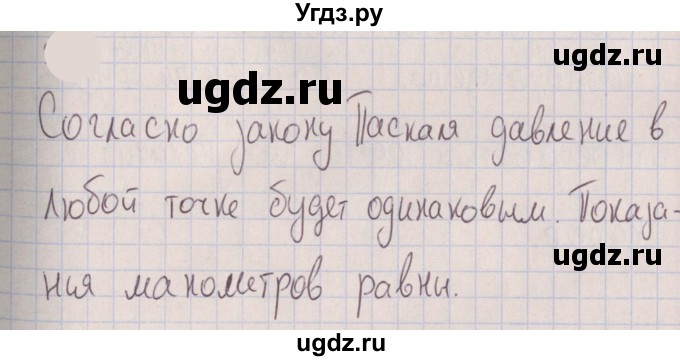 Угдз.ру
ugdz.ru
ugdz.ru
Согласно закону Паскаля давление в
любой точке будет одинаковым. Показа-
ugdz.ru
ния манометров равны.
ugdz.ru